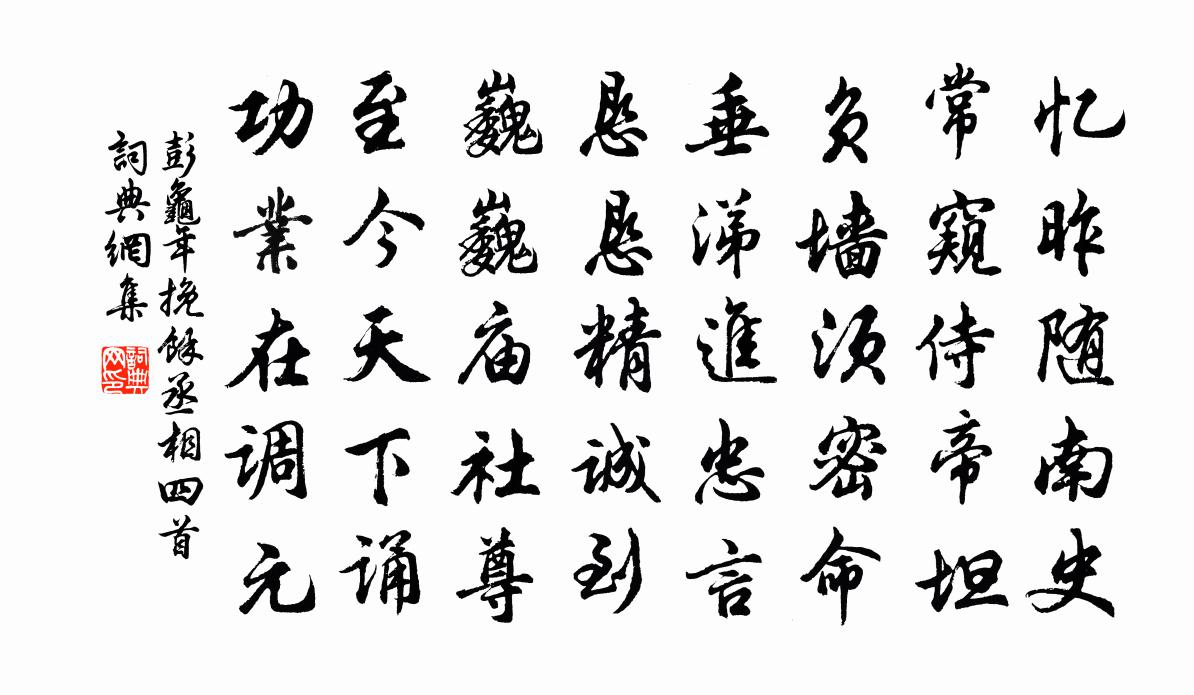 忆昨随南史
常窥侍帝坦
负墙须密命
垂涕進忠言
恳恳精诚到
巍巍庙社尊
至今天下诵
功業在调元
彭龜年挽餘丞相四首
詞典網集
詞典网印